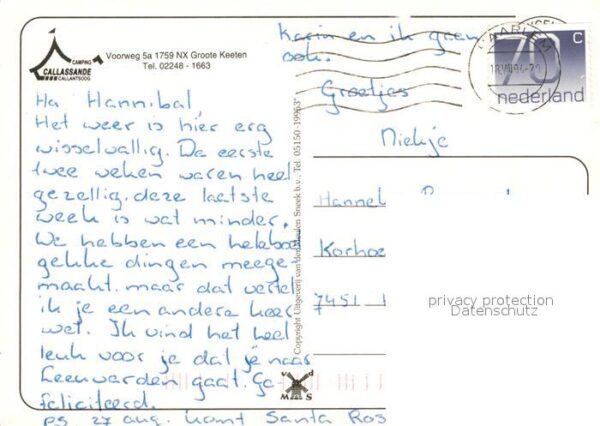 CAMPING
CALLASSANDE
CALLANTSOOG
Voorweg 5a 1759 NX Groote Keeten
Tel. 02248 - 1663
Ha Hannibal,
Het weer is hier erg
wisselvallig. De eerste
twee weken waren heel
gezellig, deze laatste
week is wat minder.
We hebben een heleboe
gekke dingen meege-
maakt. maar dat vertel
ik je een andere keer
wel. Ik vind het heel
leuk voor je dat je naar
Leeuwarden gaat. Ge-
feliciteerd.
PS 27 aug. komt Santa Ros
Karin en ik geen
ook.
Groetjes
Niekje
HAARLEM
70 c
nederland
Copyright Uitgeverij van der Meulen Sneek b.v., Tel. 05150-19963*
Hannel
Korhoe
7451
privacy protection
Datenschutz
v d
M S